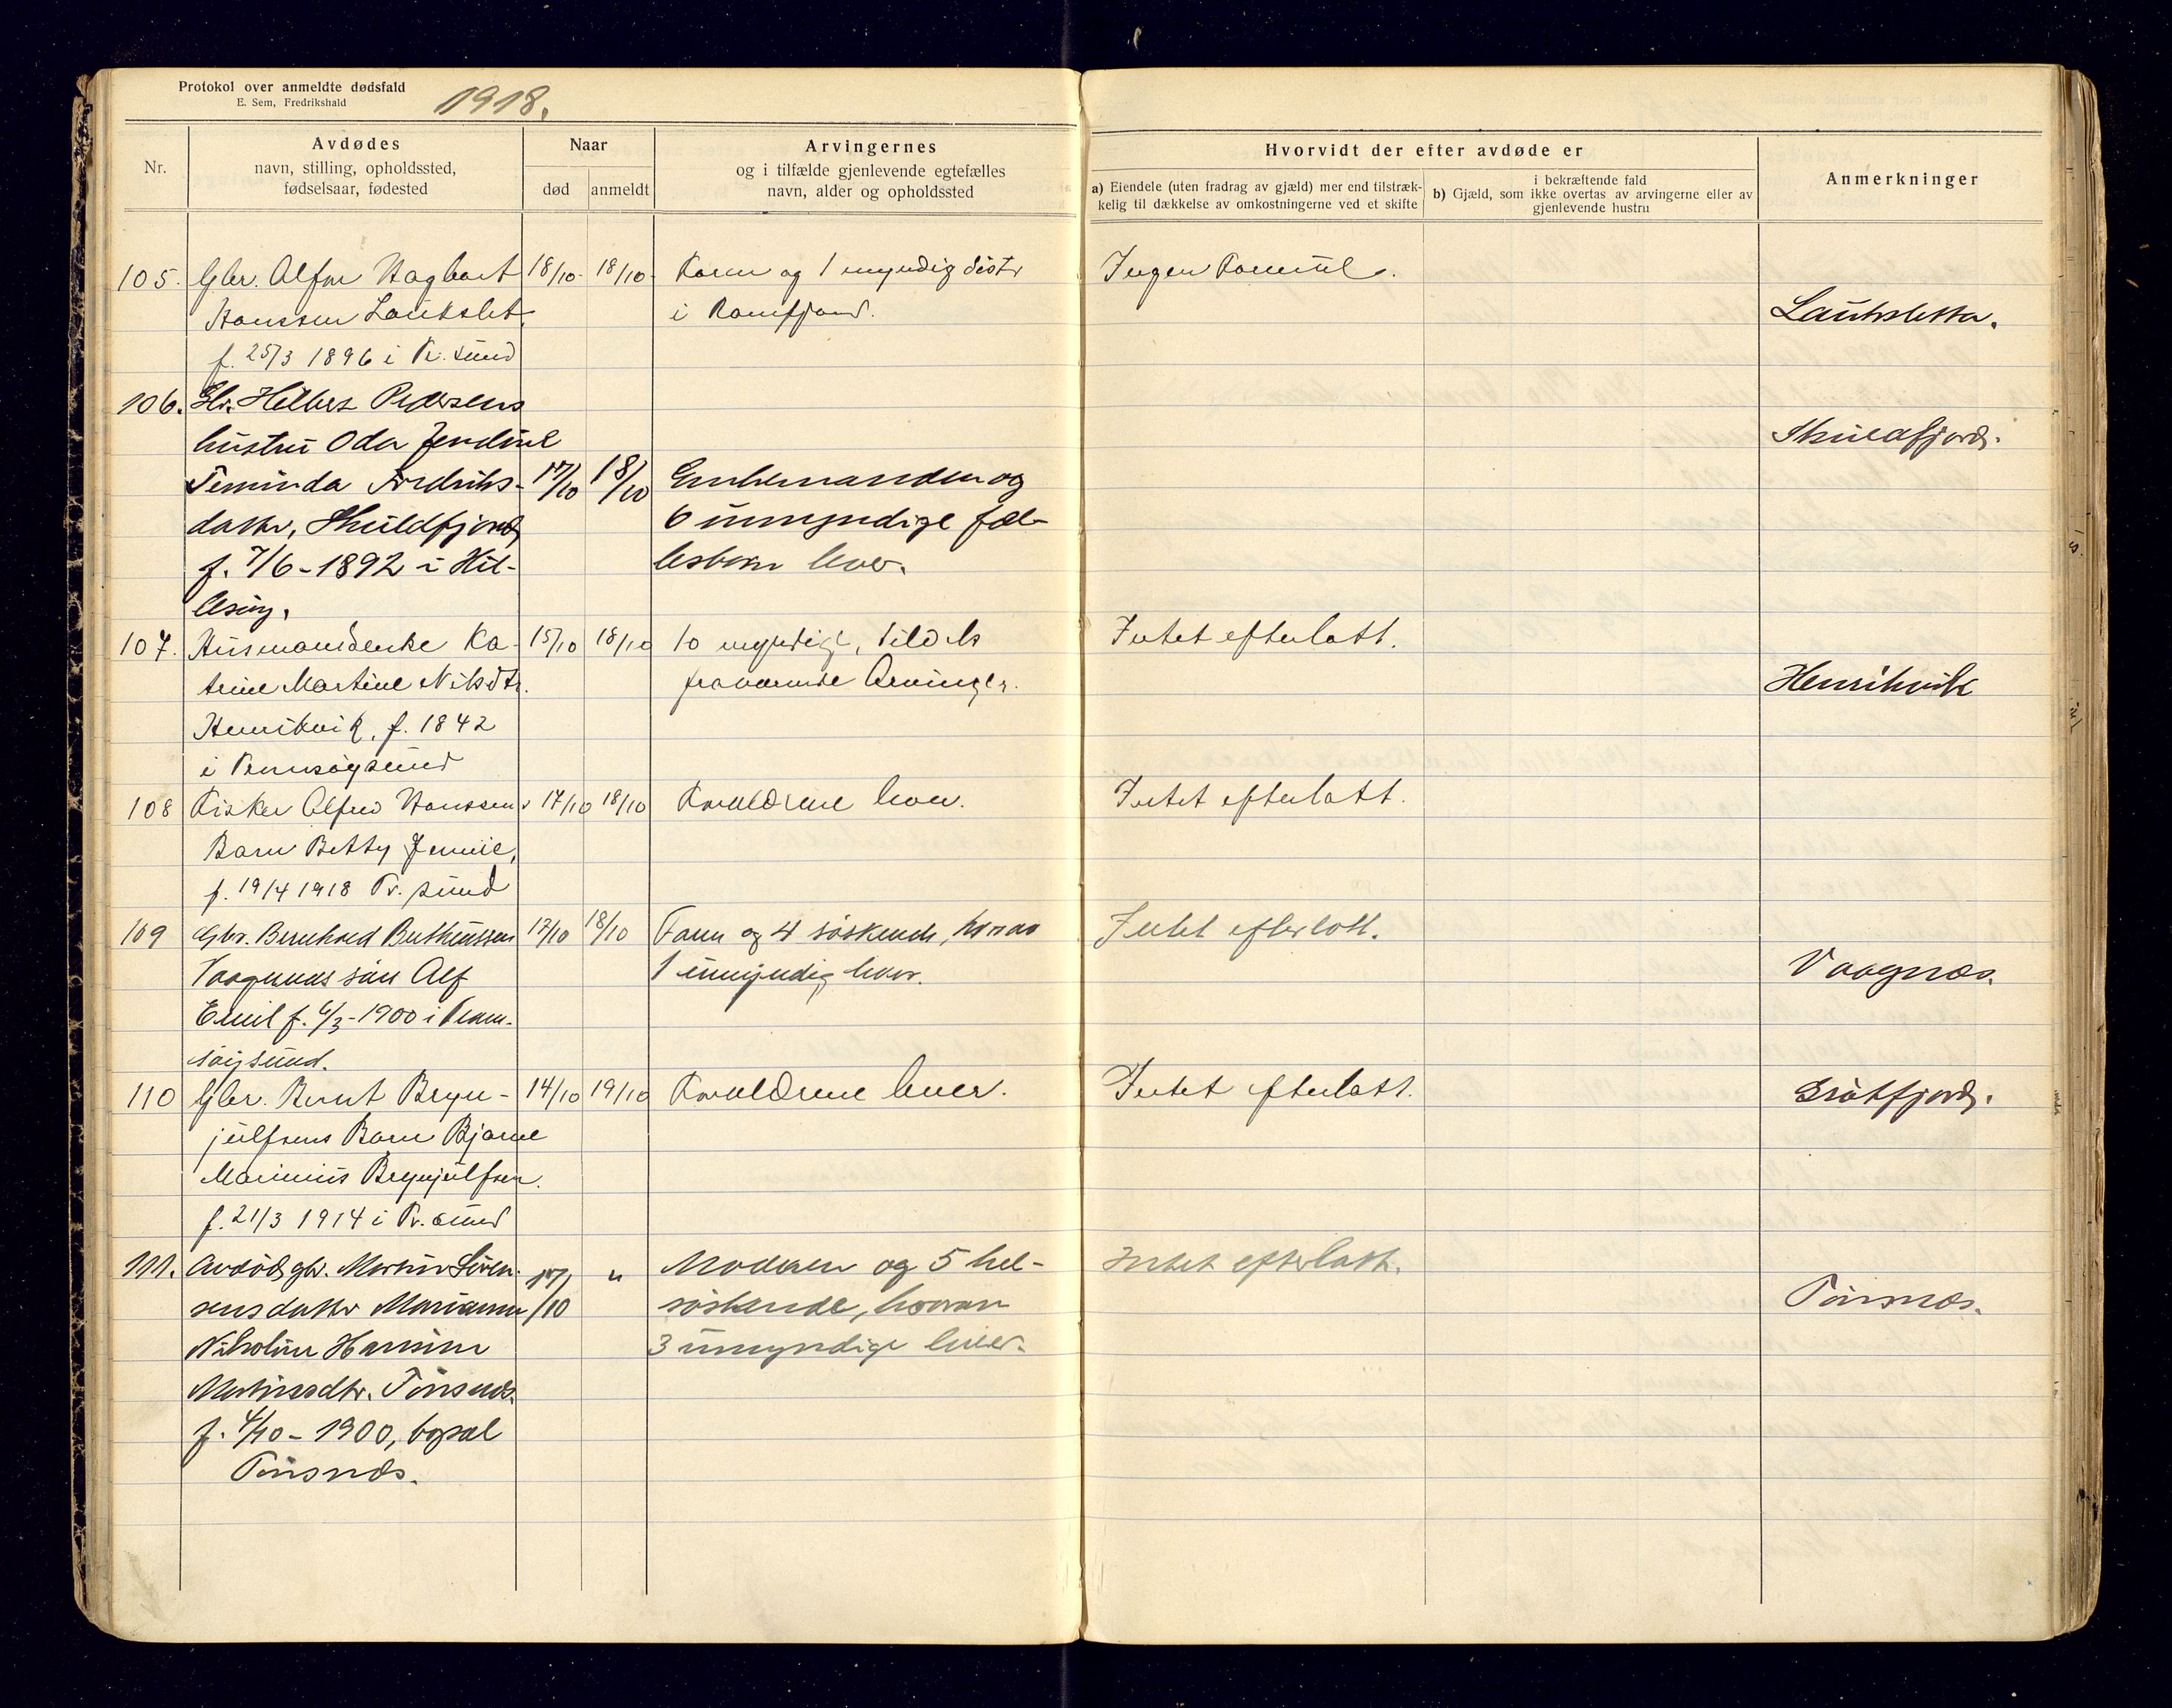 Protokol over anmeldte dødsfald
E. Sem, Fredrikshald
1918.
Nr.
Avdødes
navn, stilling, opholdssted,
fødselsaar, fødested
Naar
død
anmeldt
Arvingernes
og i tilfælde gjenlevende egtefælles
navn, alder og opholdssted
Hvorvidt der efter avdøde er
a) Eiendele (uten fradrag av gjæld) mer end tilstræk-
kelig til dækkelse av omkostningerne ved et skifte
i bekræftende fald
b) Gjæld, som ikke overtas av arvingerne eller av
gjenlevende hustru
Anmerkninger
105. Gbr. Alfon Hagbart 18/10 18/10 og 1 myndig
Hanssen Laukslet Laukslettn.
i Ramfjord.
f. 25/3 1896 i Tr. sund
106. Hilbert Pedersens
hustru Oda Jendine Skulsfjord.
Fredriks- 17/10 18/10 Enkemanden og
datter, Skuldfjord 6 umyndige fæl-
f. 7/6-1892 i Hil- lesbørn lever.
lesøy.
107. Husmandsenke Ka- 15/10 18/10 10 myndige, tildels Intet efterlatt.
trine Martine Nilsdtr. fraværende Arvinger. Henrikvik
Henrikvik, f. 1842
i Tromsøysund
108 Fisker Alfred Hanssens 17/10 18/10 Foreldrene lever. Intet efterlatt.
Barn Betty Jennie,
f. 19/4 1918 Tr. sund
109 Gbr. Bernhard Bertheussen 17/10 18/10 Faren og 4 søskende, hvorav Intet efterlatt.
Vaagnæs søn Alf 1 umyndig lever. Vaagnæs.
Emil f. 6/3-1900 i Trom-
søysund.
110 Gbr. Bernt Bryn- 14/10 19/10 Foreldrene lever. Intet efterlatt. Grøtfjord.
julfsens Barn Bjarne
Marinius Brynjulfsen.
f. 21/3 1914 i Tr. sund
111. Avdød gbr. Martin Søren- 17/10 " Moderen og 5 hel- Intet efterlatt.
sens datter Marianne søskende, hvorav Tønsnæs.
Nikoline Hansine 3 umyndige lever.
Martinsdtr. Tønsnæs.
f. 4/10-1900, bopæl
Tønsnæs.